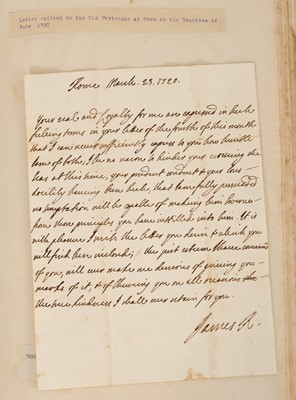 Letter written by the Old Pretender at Rome to the Countess of
Bute 1720
Rome March. 23. 1720.
Your zeal and loyalty for me are expressed in such
feeling terms in your letter of the fourth of this month
that I can never sufficiently express to you how sensible
I am of both; I see no reason to hinder your crossing the
sea at this time, your prudent conduct & your son's
docility having been such, that I am fully persuaded
no temptation will be capable of making him
those principles you have instilled into him. It is
with pleasure I write the letter you desire & which you
will find here inclosed; the just esteem I have
of you, will ever make me desirous of giving you
marks of it, & of shewing you on all occasions the
sincere kindness I shall ever retain for you.
James R.